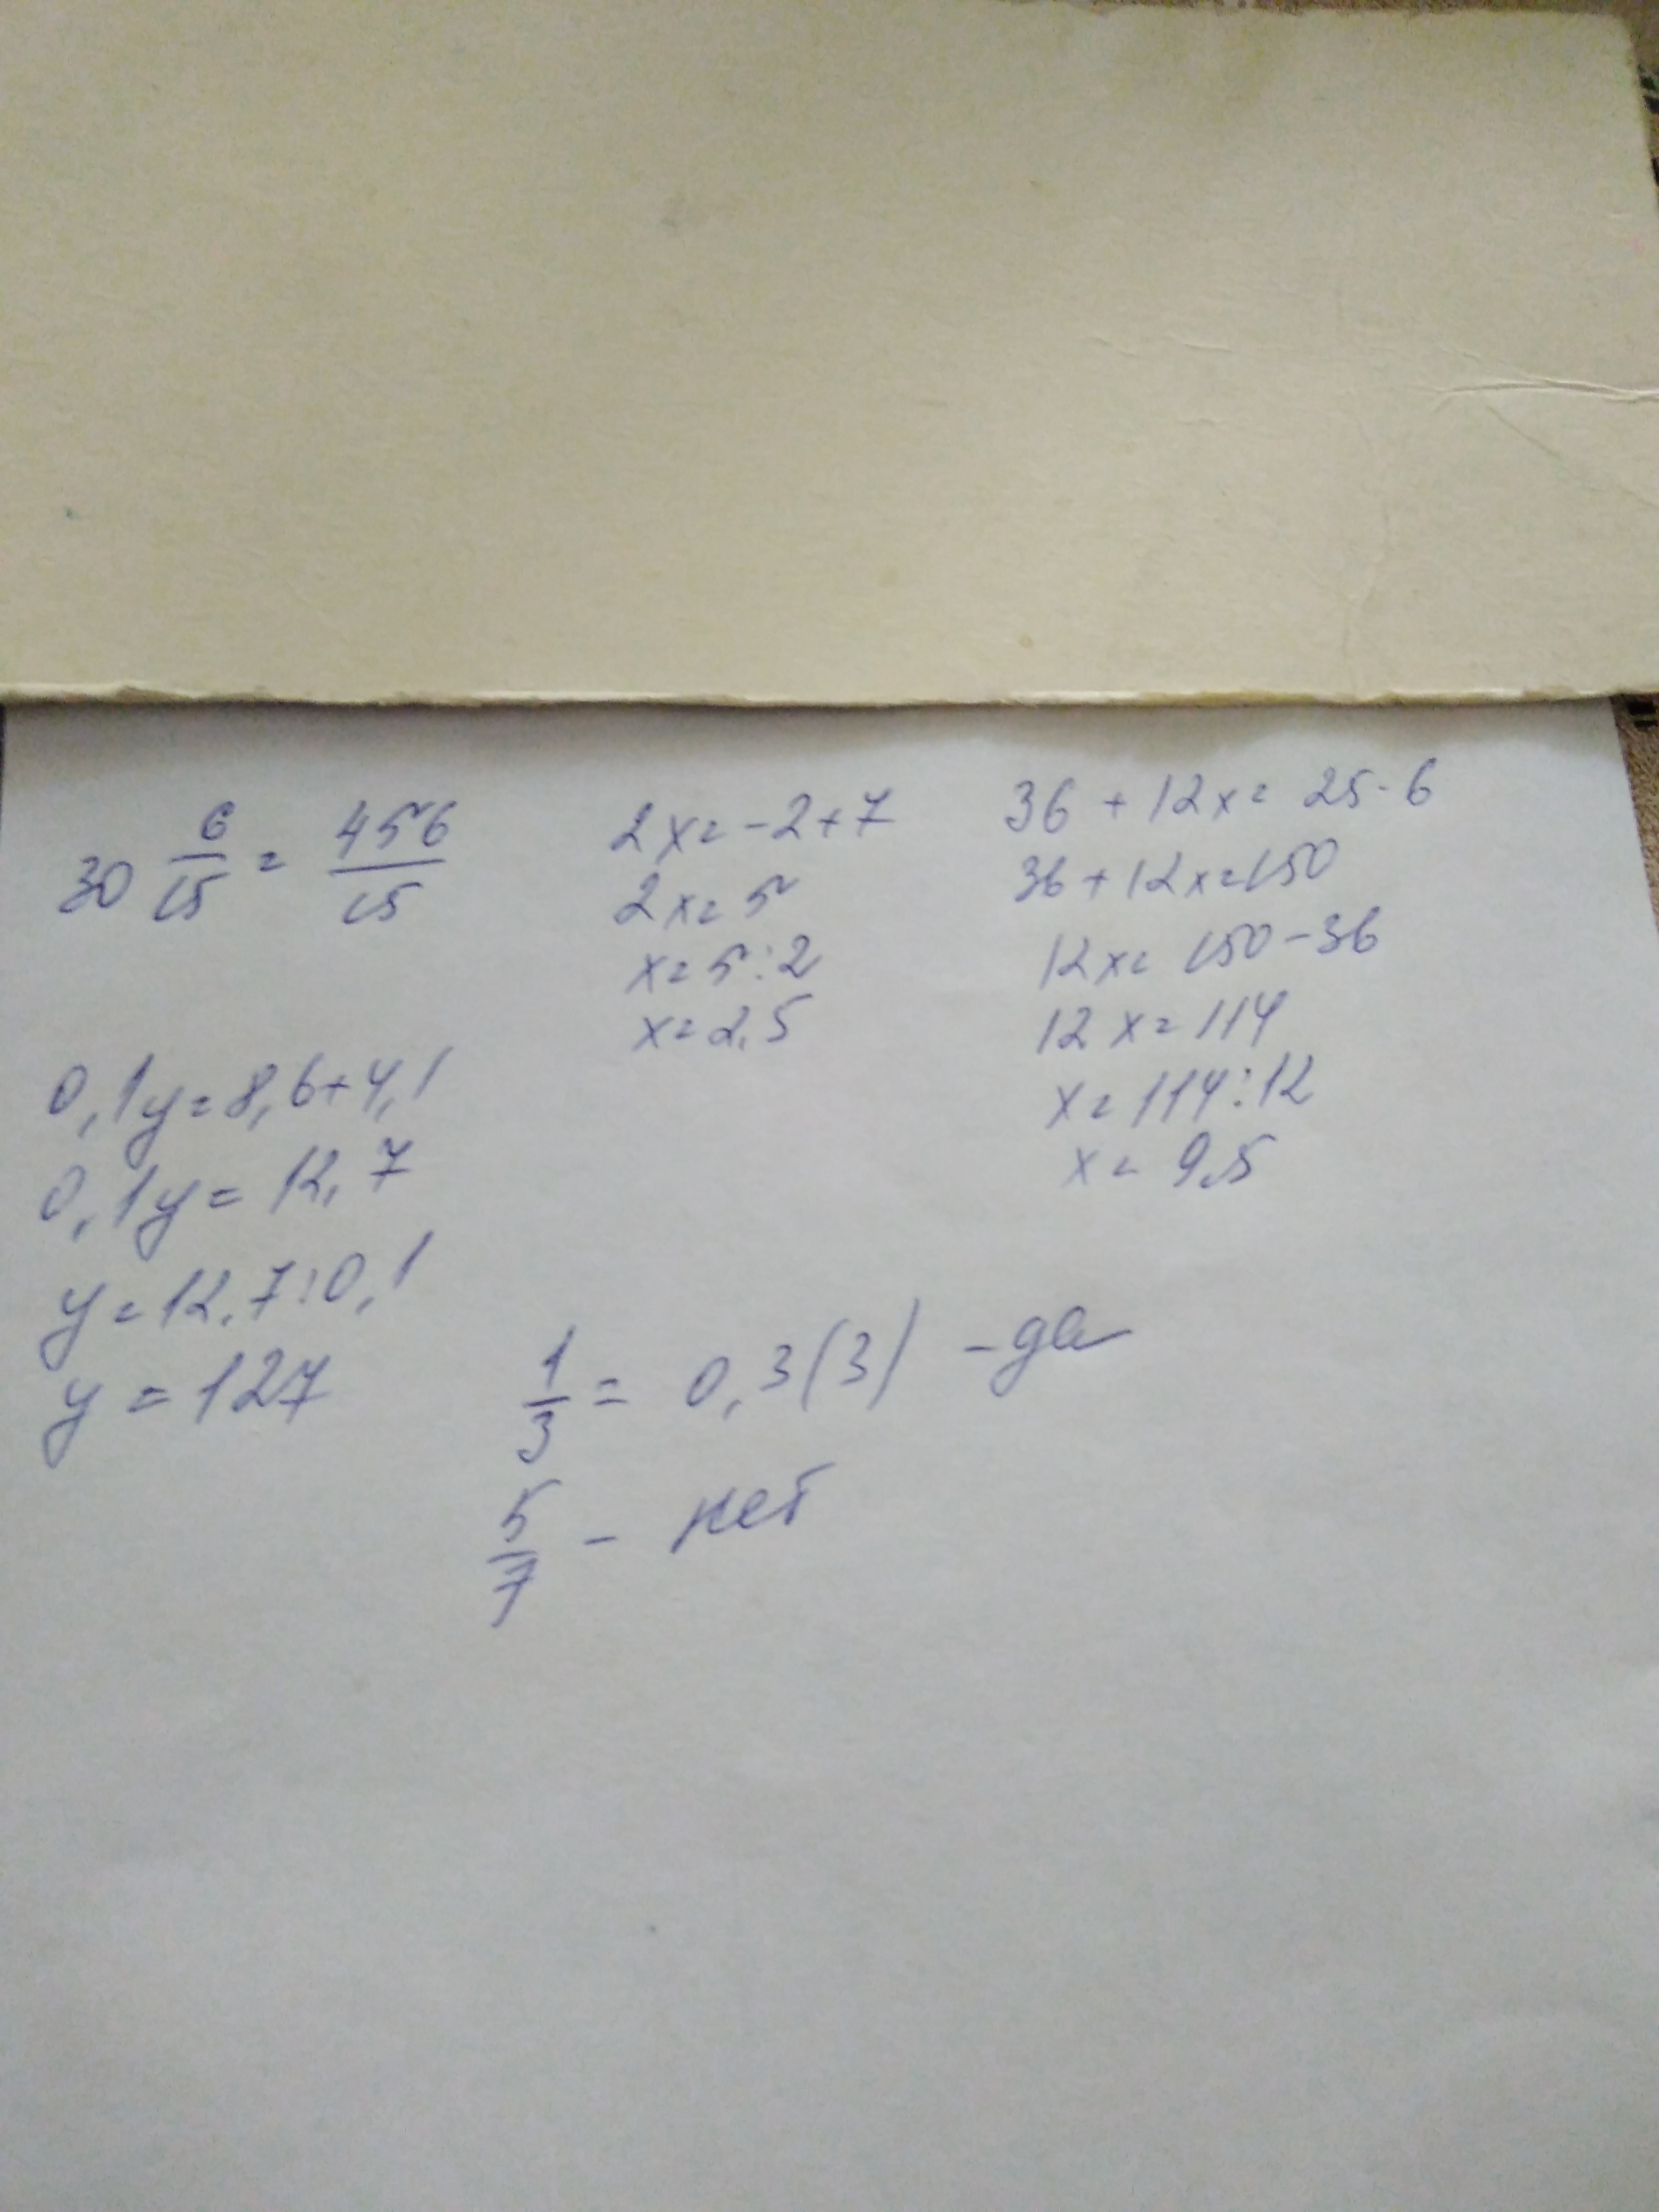 30 6/15 = 456/15
0,1y=8,6+4,1
0,1y=12,7
y=12,7:0,1
y=127
2x=-2+7
2x=5
x=5:2
x=2,5
36+12x=25·6
36+12x=150
12x=150-36
12x=114
x=114:12
x=9,5
1/3 = 0,3(3) - да
5/7 - нет